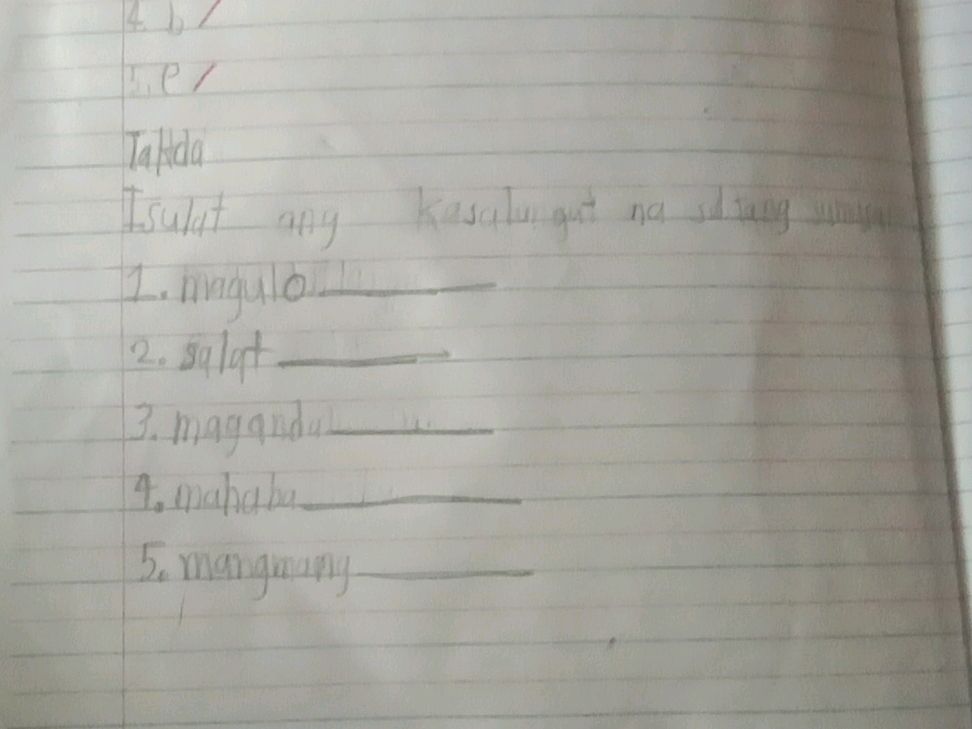 4. b /
5. e /
Takda
Isulat ang Kasalungat na salitang
1. magulo
2. salat
3. maganda
4. mahaba
5. mangmang